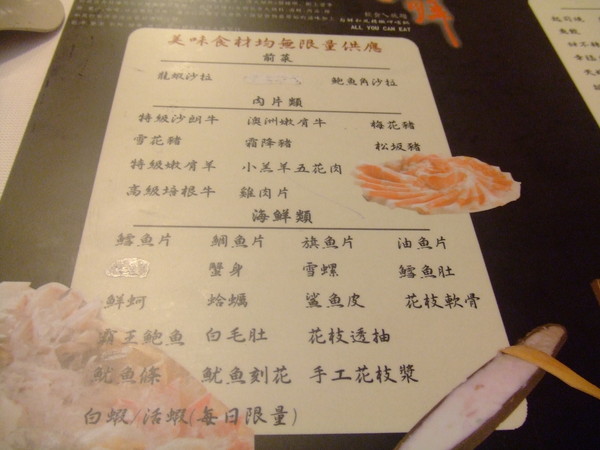 ALL YOU CAN EAT
美味食材均無限量供應
前菜
龍蝦沙拉 鮑魚角沙拉
肉片類
特級沙朗牛 澳洲嫩肩牛 梅花豬
雪花豬 霜降豬 松坂豬
特級嫩肩羊 小羔羊五花肉
高級培根牛 雞肉片
海鮮類
鱈魚片 鯛魚片 旗魚片 油魚片
蟹身 雪螺 鱈魚肚
鮮蚵 蛤蠣 鯊魚皮 花枝軟骨
霸王鮑魚 白毛肚 花枝透抽
魷魚條 魷魚刻花 手工花枝漿
白蝦/活蝦(每日限量)